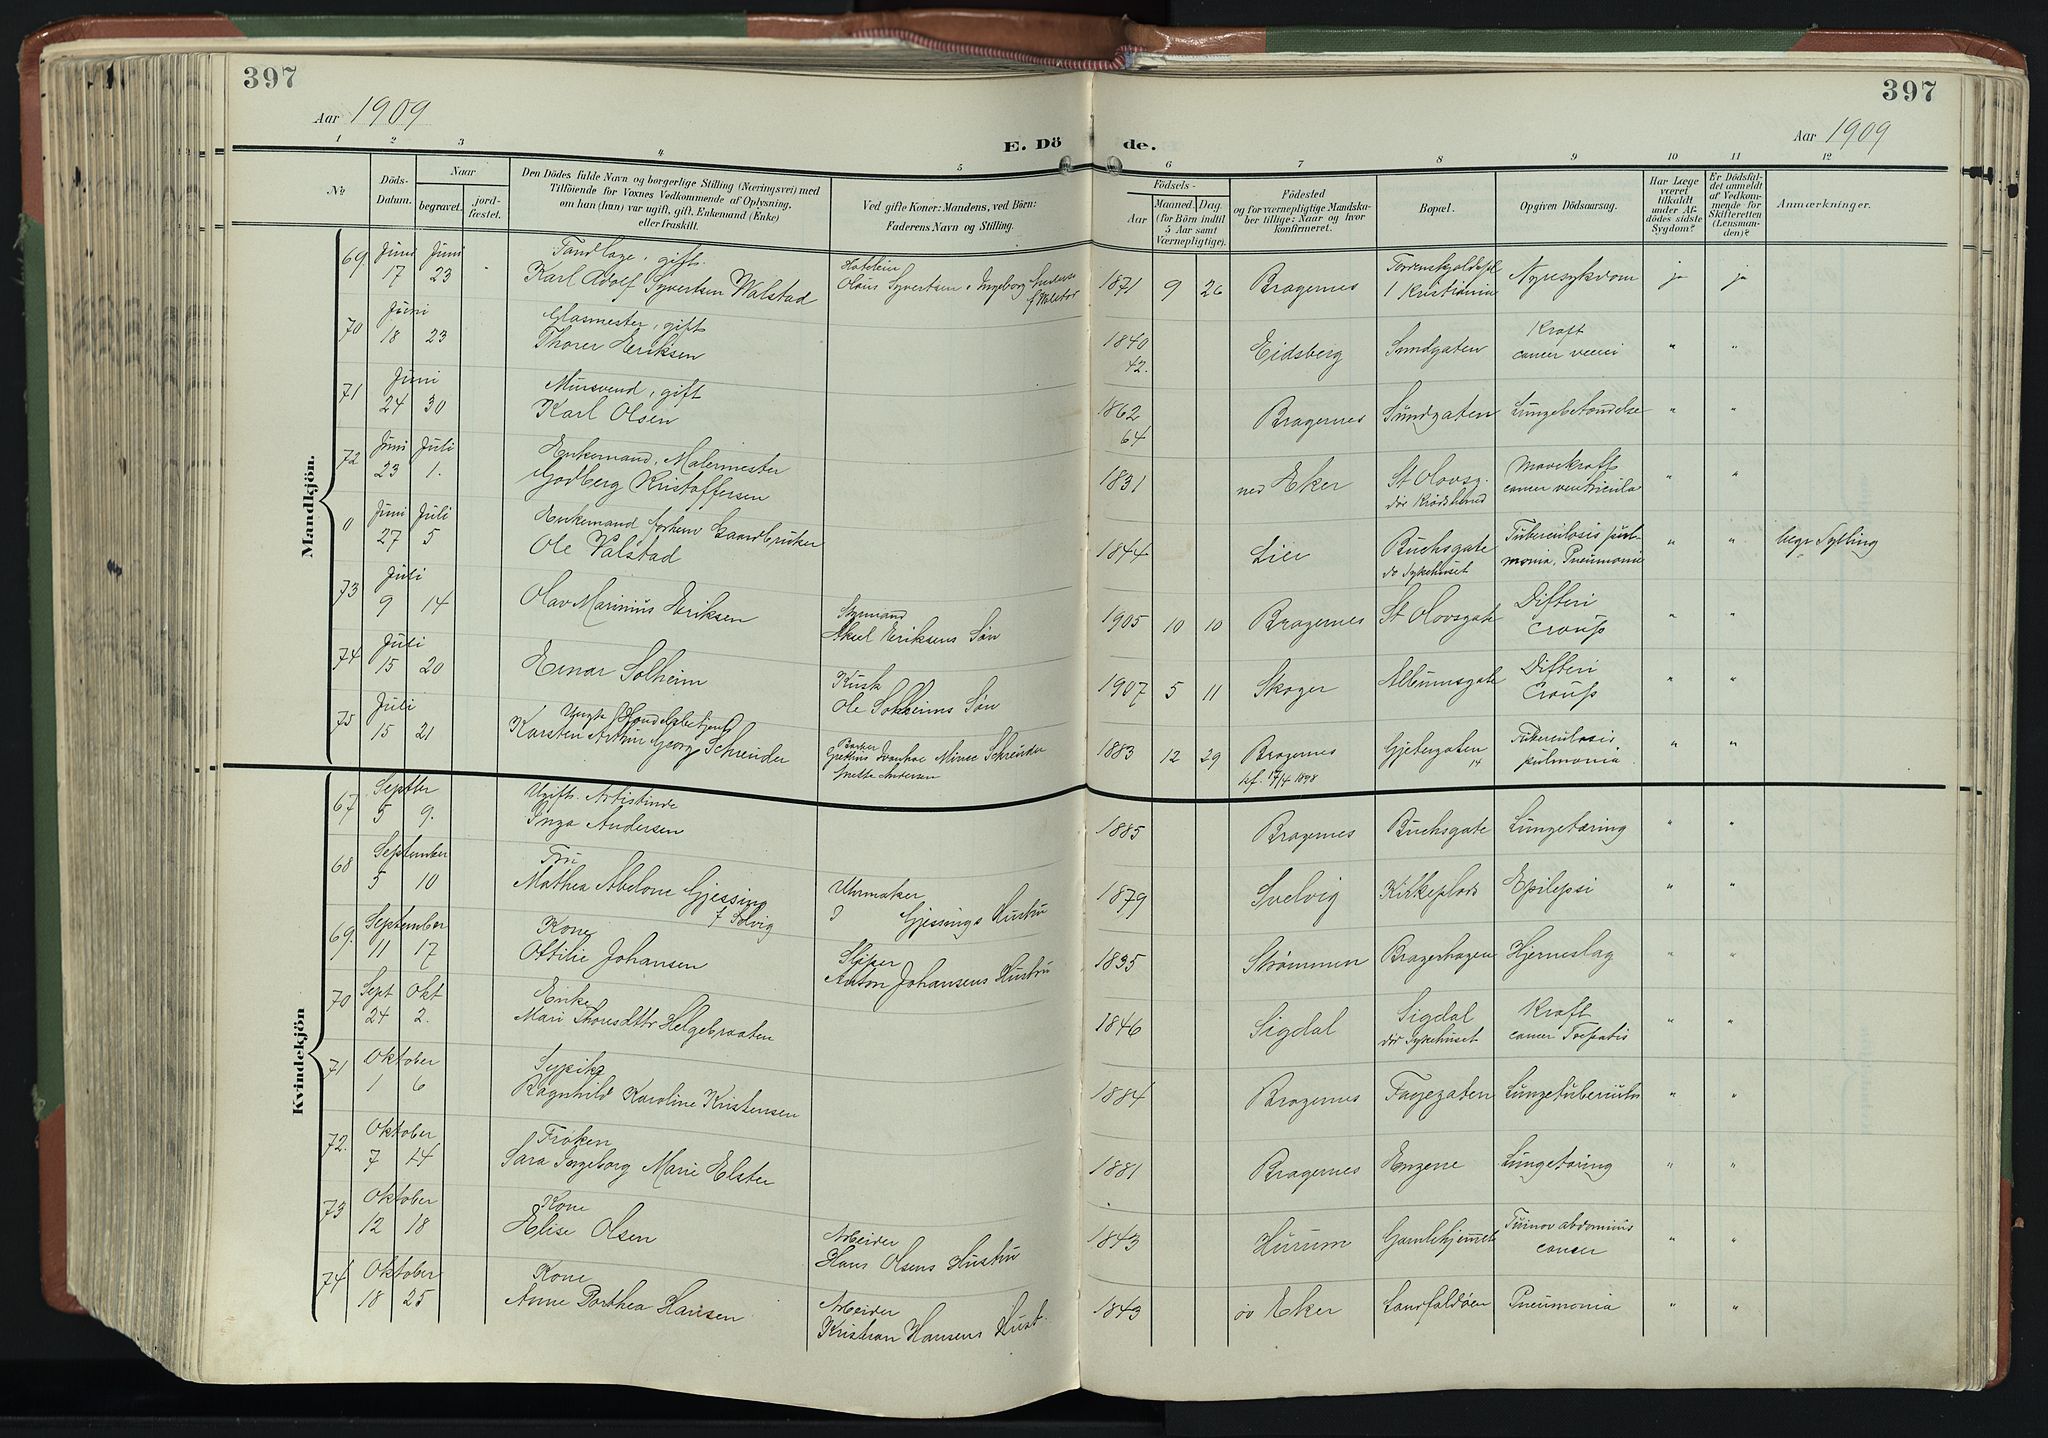 397
397
Aar 1909
Aar 1909
E. Dö
de.
1 2 3 4 5 6 7 8 9 10 11 12
No
Döds-
Datum.
Naar
begravet.
jord-
fæstet.
Den Dödes fulde Navn og borgerlige Stilling (Næringsvei) med
Tilföiende for Voxnes Vedkommende af Oplysning,
om han (hun) var ugift, gift, Enkemand (Enke)
eller fraskilt.
Ved gifte Koner: Mandens, ved Börn:
Faderens Navn og Stilling.
Födsels-
Aar
Maaned.
(for Börn indtil
5 Aar samt
Værnepligtige).
Dag.
Födested
og for værnepligtige Mandska-
ber tillige: Naar og hvor
konfirmeret.
Bopæl.
Opgiven Dödsaarsag.
Har Læge
været
tilkaldt
under Af-
dödes sidste
Sygdom?
Er Dödsfal-
det anmeldt
af Vedkom-
mende for
Skifteretten
(Lensman-
den)?
Anmærkninger.
Mandkjön.
69 Juni 17 Juni 23 Tandlæge, gift.
Karl Adolf Syvertsen Walstad
Olaus Syvertsen Ingeborg
1871 9 26 Bragernes
i Kristiania
Nyresykdom ja ja
70 Juni 18 23 Glasmester, gift
Thorer Eriksen
1840
42.
Eidsberg Sundgaten Kraft
cancer " "
71 Juni 24 30 Mursvend, gift
Karl Olsen
1862
64
Bragernes Sundgaten Lungebetændelse " "
72 Juni 23 Juli 1. Enkemand, Malermester
Godberg Kristoffersen
1831 ned Eker St Olovsg. Mavekraft
cancer ventricula " "
0 Juni 27 Juli 5 Enkemand forhen Gaardbruker
Ole Valstad
1844 Lier Buchsgate
do Sykehuset
Tuberculosis pul-
monia, Pneumonie " " begr Sylling
73 Juli 9 14 Olav Marinius Eriksen
Styrmand
Aksel Eriksens Søn
1905 10 10 Bragernes St Olovsgate Difteri
Croup " "
74 Juli 15 20 Einar Solheim
Kusk
Ole Solheims Søn
1907 5 11 Skoger Albumsgate Difteri
Croup " "
75 Juli 15 21 Ungk (Handelsbetjent)
Karsten Arthur Georg Schreuder
1883 12 29 Bragernes
kf. 17/4 1898
Gjetergaten
14
Tuberculosis
pulmonia. " "
Kvindekjön
67 Septber 5 9. Ugift. Artistinde
Inga Andersen
1885 Bragernes Buchsgate Lungetæring " "
68 September 5 10 Fru
Mathea Abelone Gjessing
f Solvig
Uhrmaker
Gjessings Hustru
1879 Svelvig Kirkeplads Epilepsi " "
69. September 11 17 Kone
Ottilie Johansen
Sliper
Anton Johansens Hustru
1835 Strømmen Bragerhagen Hjerneslag " "
70 Sept 24 Okt 2. Enke
Mari Thorsdttr Helgebraaten
1846 Sigdal Sigdal
dør Sykehuset
Kraft
cancer " "
71 Oktober 1 6 Sypike
Ragnhild Karoline Kristensen
1884 Bragernes Fagegaten " "
72. Oktober 7 14 Frøken
Sara Ingeborg Marie Elster
1881 Bragernes Engene Lungetæring " "
73 Oktober 12 18 Kone
Elise Olsen
Arbeider
Hans Olsens Hustru
1843 Hurum Gamlehjemmet
cancer " "
74 Oktober 18 25 Kone
Anne Dorthea Hansen
Arbeider
Kristian Hansens Hust.
1843 öv Eker Landfaldøen Pneumonia " "